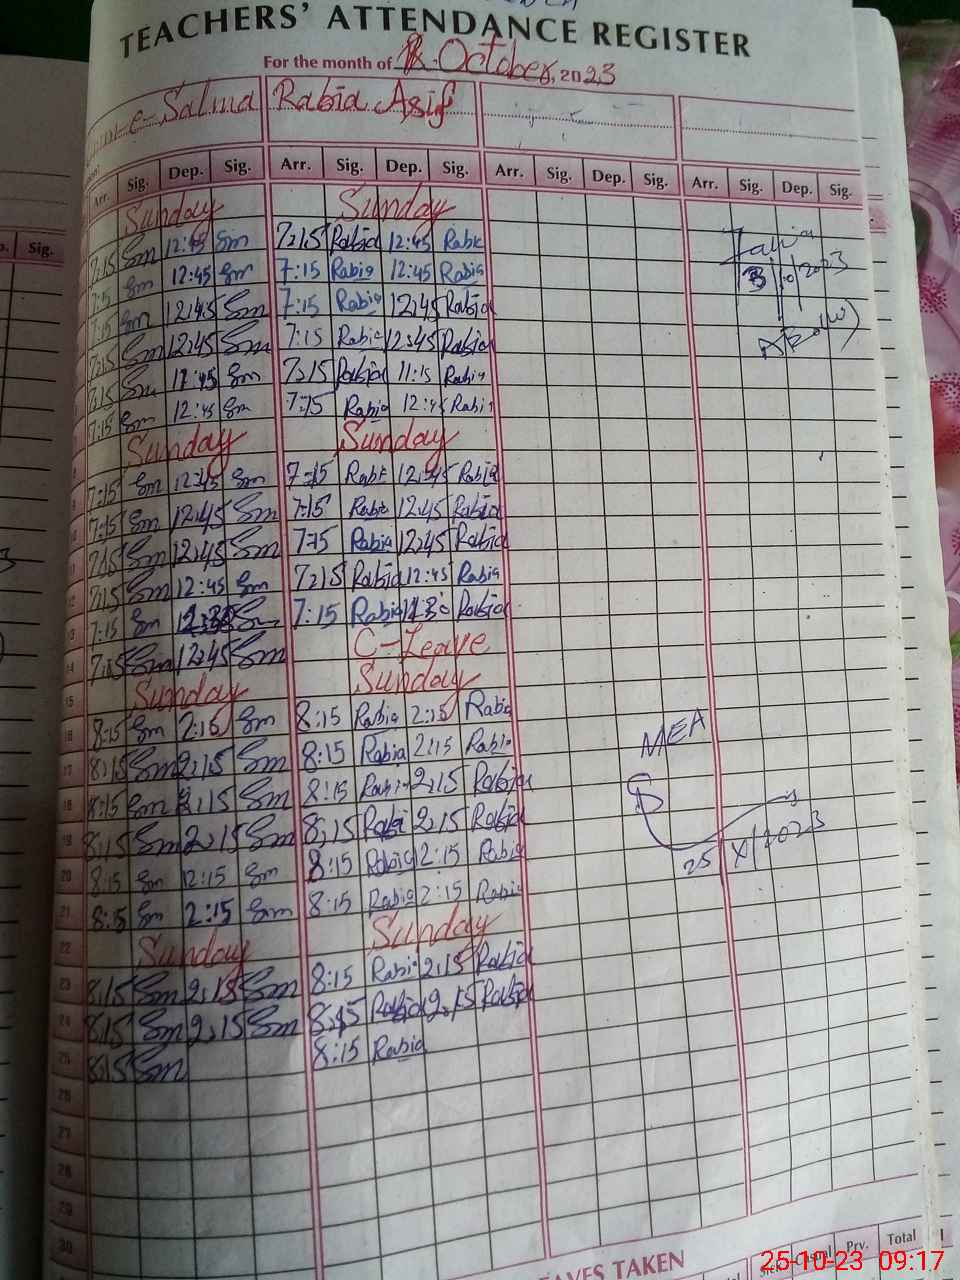 TEACHERS' ATTENDANCE REGISTER
For the month of October, 2023
e-Salma Rabia Asif
Arr. Sig. Dep. Sig. Arr. Sig. Dep. Sig. Arr. Sig. Dep. Sig. Arr. Sig. Dep. Sig.
Sunday Sunday
7:15 Sm 12:45 Sm 7:15 Rabia 12:45 Rabi
7:15 Sm 12:45 Sm 7:15 Rabia 12:45 Rabia
7:15 Sm 12:45 Sm 7:15 Rabia 12:45 Rabia
7:15 Sm 12:45 Sm 7:15 Rabia 12:45 Rabia
7:15 Sm 11:45 Sm 7:15 Rabia 11:15 Rabia
7:15 Sm 12:45 Sm 7:15 Rabia 12:45 Rabia
Sunday Sunday
7:15 Sm 12:45 Sm 7:15 Rabi 12:45 Rabia
7:15 Sm 12:45 Sm 7:15 Rabia 12:45 Rabia
7:15 Sm 12:45 Sm 7:15 Rabia 12:45 Rabia
7:15 Sm 12:45 Sm 7:15 Rabia 12:45 Rabia
7:15 Sm Sm 7:15 Rabia Rabia
14 7:15 Sm 12:45 Sm C-Leave
15 Sunday Sunday
16 8:15 Sm 2:15 Sm 8:15 Rabia 2:15 Rabia
17 8:15 Sm 2:15 Sm 8:15 Rabia 2:15 Rabia
MEA
18 8:15 Sm 2:15 Sm 8:15 Rabia 2:15 Rabia
19 8:15 Sm 2:15 Sm 8:15 Rabia 2:15 Rabia
25/X/2023
20 8:15 Sm 12:15 Sm 8:15 Rabia 2:15 Rabia
21 8:15 Sm 2:15 Sm 8:15 Rabia 2:15 Rabia
22 Sunday Sunday
23 8:15 Sm 2:15 Sm 8:15 Rabia 2:15 Rabia
24 8:15 Sm 2:15 Sm 8:15 Rabia 2:15 Rabia
25 8:15 Sm 8:15 Rabia
26
27
28
29
30
Casual Prv. Total
25-10-23 09:17